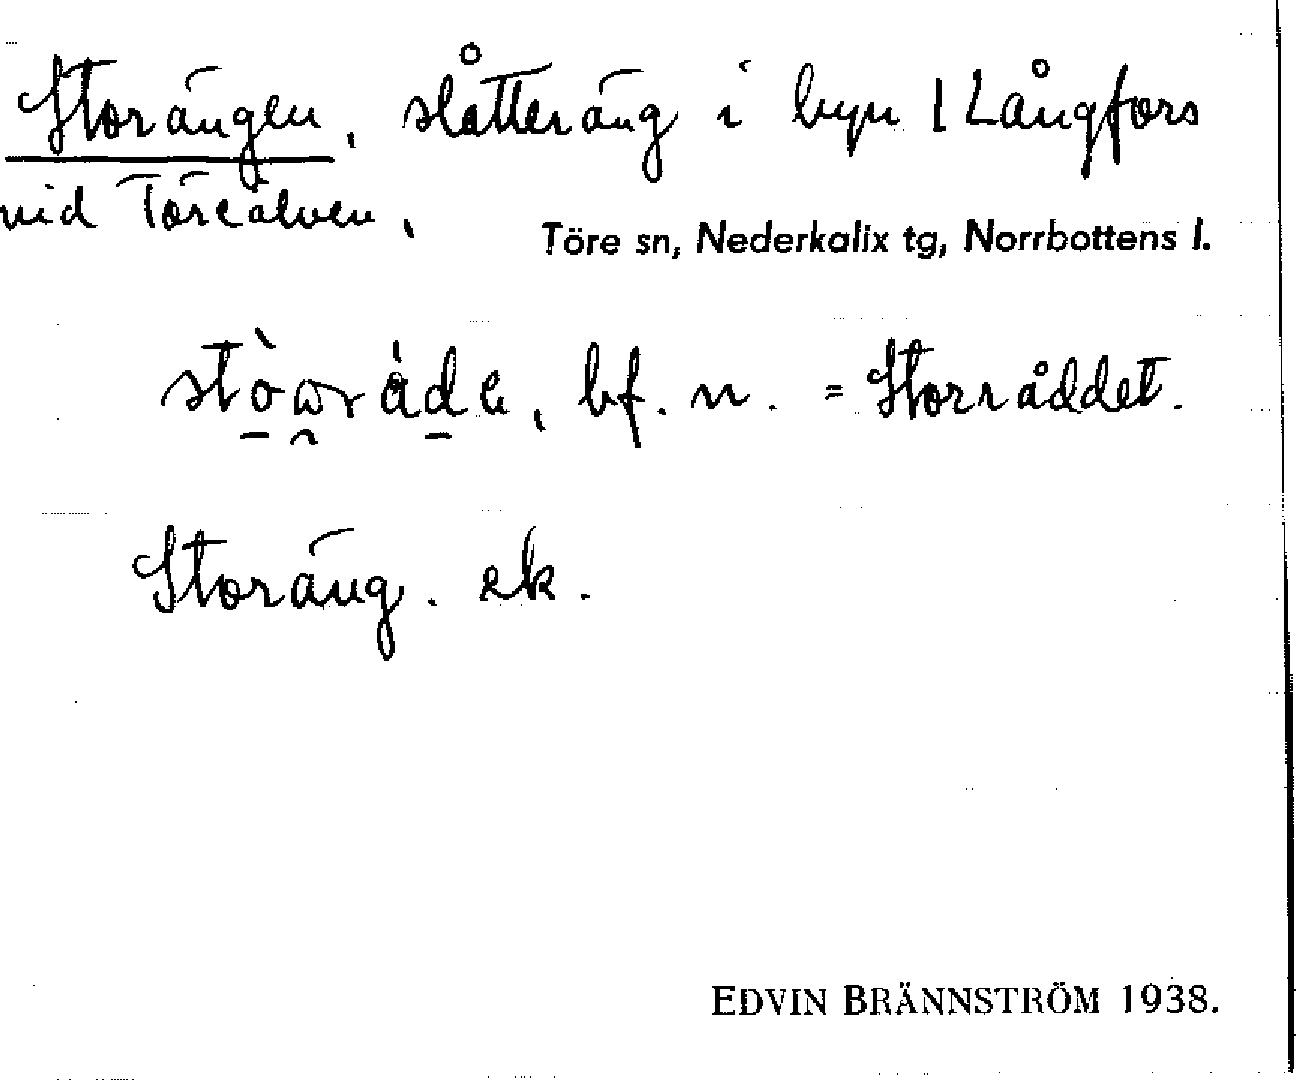 Storängen, slåtteräng i byn 1 Långfors
vid Töreälven,
Töre sn, Nederkalix tg, Norrbottens l.
bf. n. = Storråddet.
Storäng. ek.
EDVIN BRÄNNSTRÖM 1938.